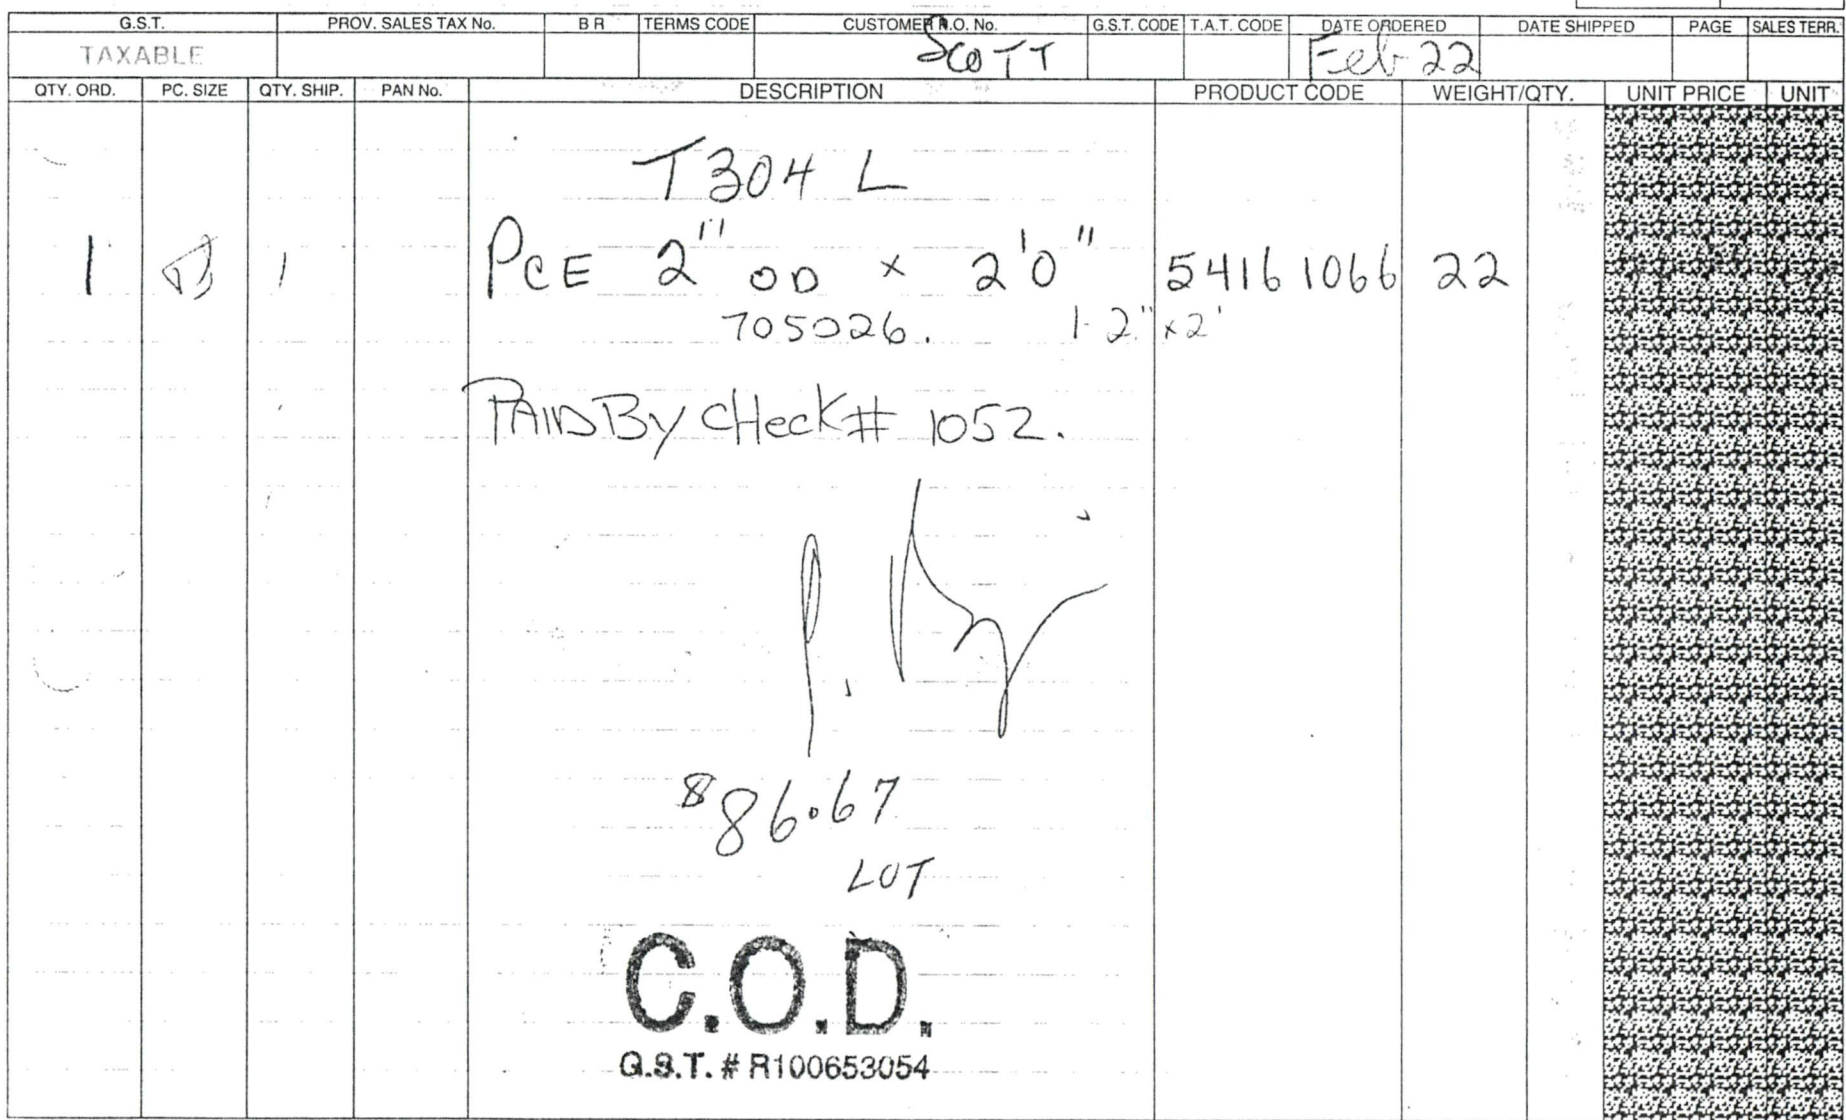 G.S.T. PROV. SALES TAX No. B R TERMS CODE CUSTOMER P.O. No. G.S.T. CODE T.A.T. CODE DATE ORDERED DATE SHIPPED PAGE SALES TERR.
TAXABLE SCOTT Feb 22
QTY. ORD. PC. SIZE QTY. SHIP. PAN No. DESCRIPTION PRODUCT CODE WEIGHT/QTY. UNIT PRICE UNIT
T304 L
1 1 PCE 2" OD x 2'0" 5416 1066 22
705026. 1-2"x2'
PAID By CHeck # 1052.
$86.67
LOT
C.O.D.
G.S.T. # R100653054